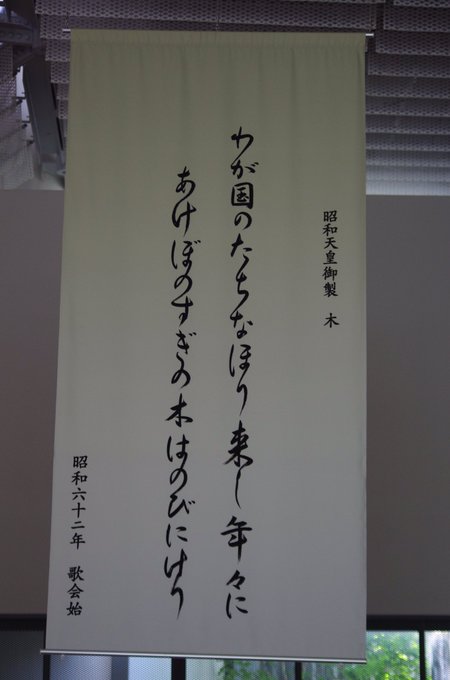 昭和天皇御製　木
わが国のたちなほり来し年々に
あけぼのすぎの木はのびにけり
昭和六十二年　歌会始